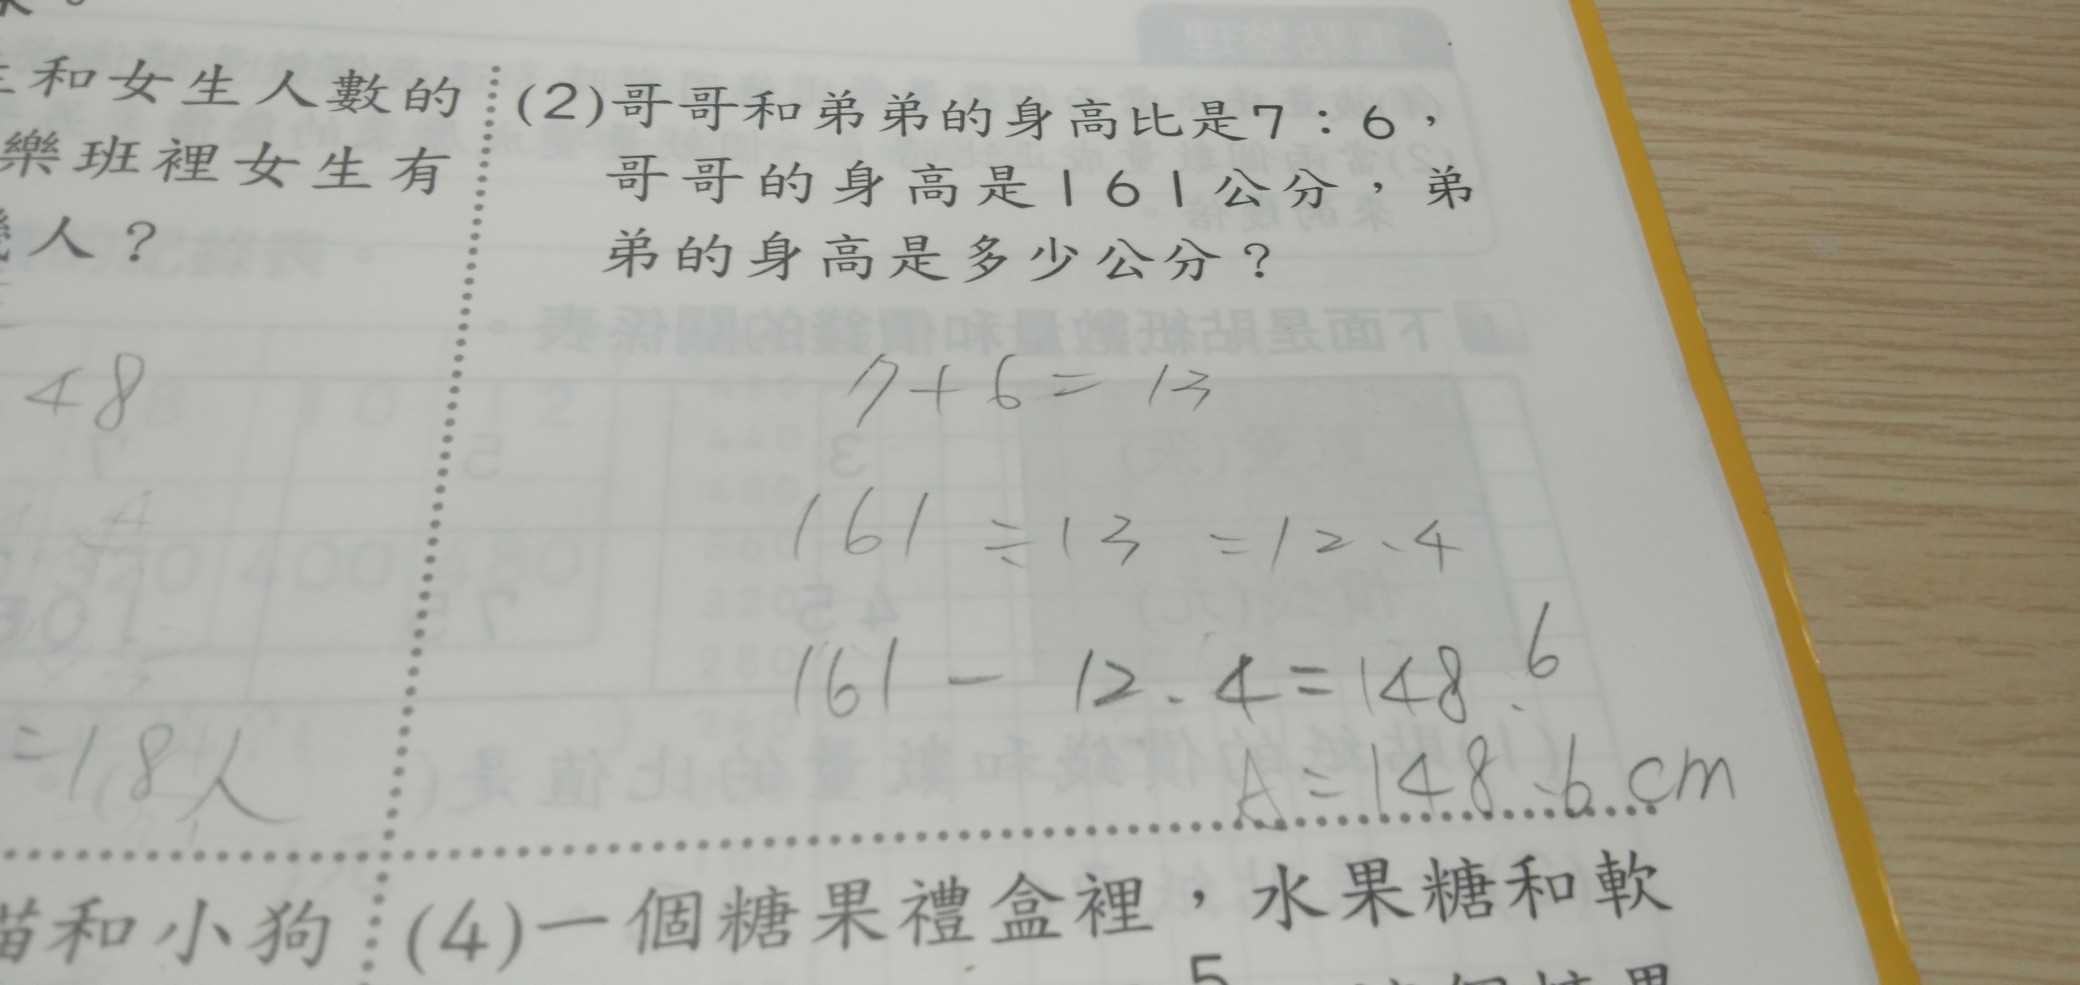 和女生人數的
樂班裡女生有
人？
48
=18人
(2)哥哥和弟弟的身高比是7：6，
哥哥的身高是161公分，弟
弟的身高是多少公分？
7+6=13
161÷13=12.4
161-12.4=148.6
A=148.6cm
和小狗
(4)一個糖果禮盒裡，水果糖和軟
5